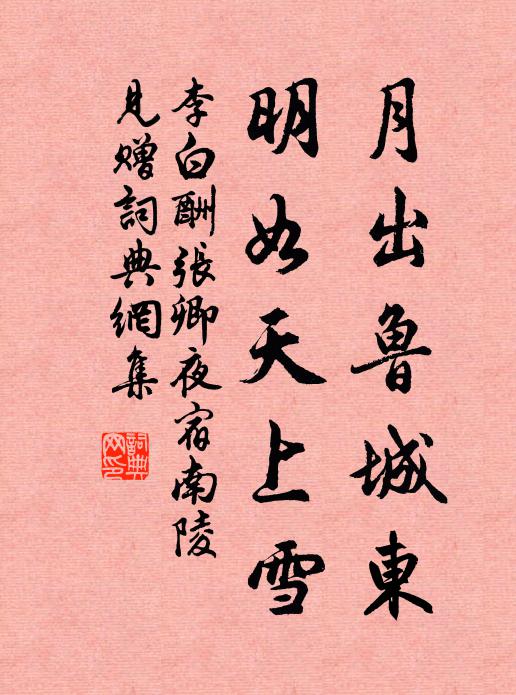 月出魯城東
明如天上雪
李白酬張卿夜宿南陵
見贈詞典網集
詞典網印